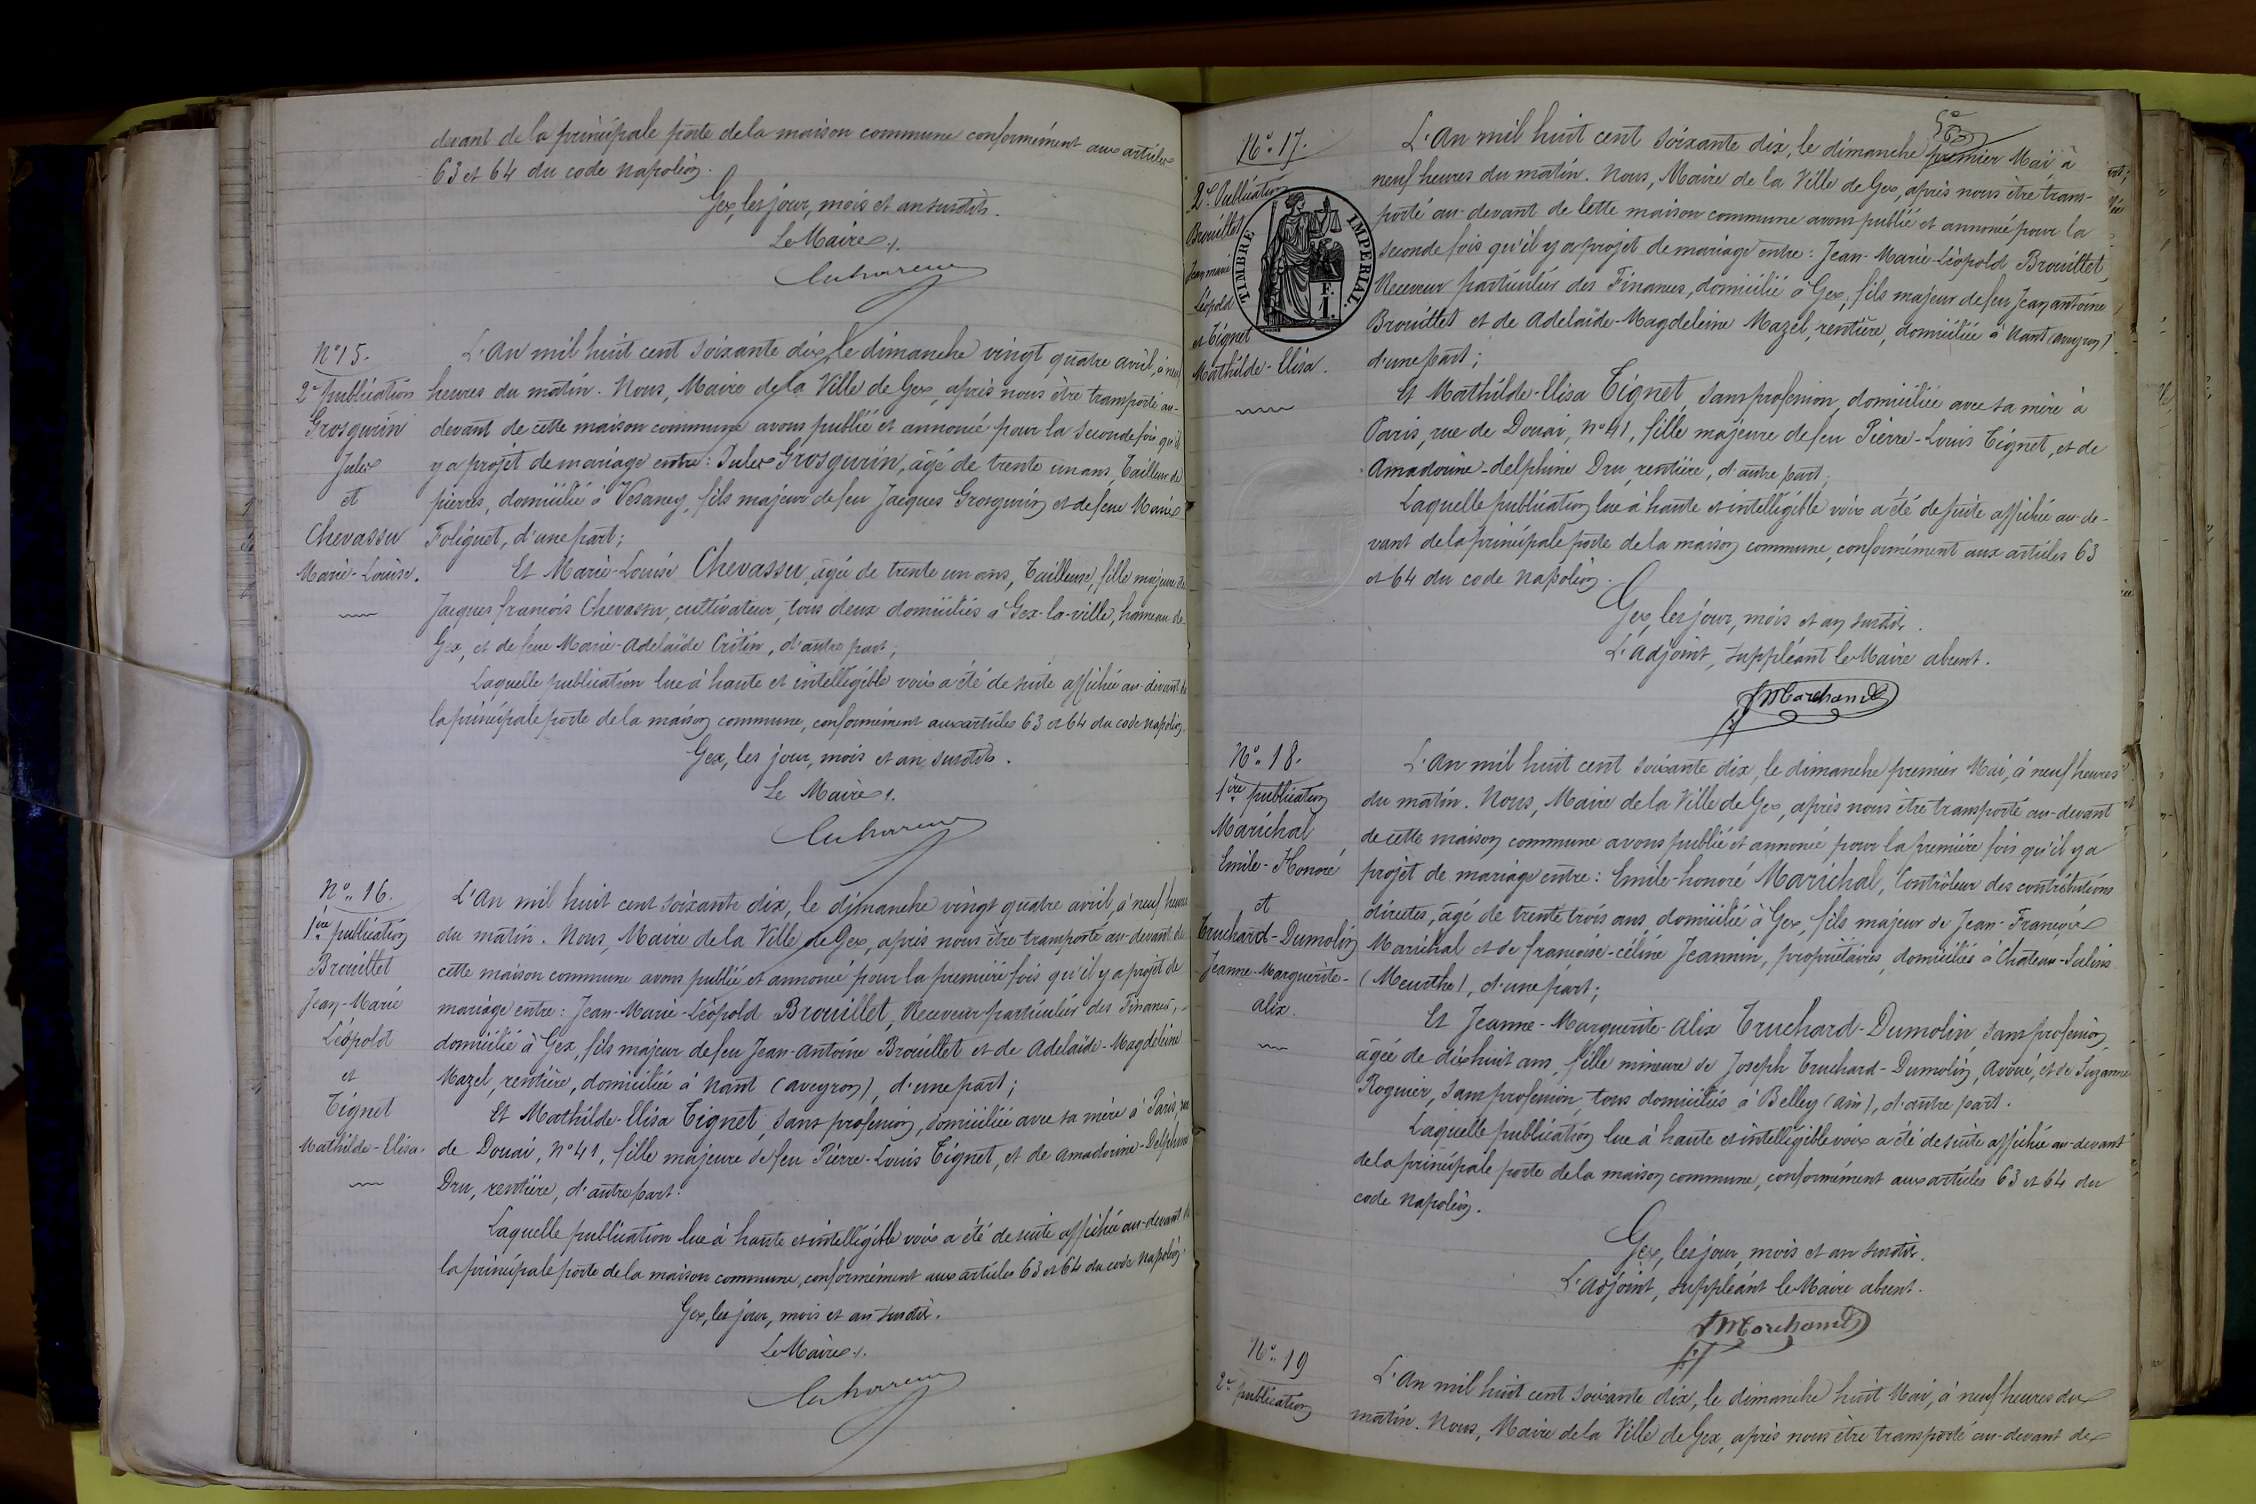 devant de la principale porte de la maison commune conformément aux articles
63 et 64 du code napoléon.
Gex, les jour, mois et an susdits.
Le Maire,
N° 15.
2e publication
Grosgurin
Jules
et
Chevassu
Marie-Louise.
L'An mil huit cent soixante dix, le dimanche vingt quatre avril, à neuf
heures du matin. Nous, Maire de la Ville de Gex, après nous être transporté au-
devant de cette maison commune avons publié et annoncé pour la seconde fois qu'il
y a projet de mariage entre : Jules Grosgurin, âgé de trente un ans, Tailleur de
pierres, domicilié à Vesancy, fils majeur de feu Jacques Grosgurin et de feue Marie
Foliguet, d'une part ;
Et Marie-Louise Chevassu, âgée de trente un ans, Tailleuse, fille majeure de
Jacques françois Chevassu, cultivateur, tous deux domiciliés à Gex-la-ville, hameau de
Gex, et de feue Marie-Adelaïde Critin, d'autre part ;
Laquelle publication lue à haute et intelligible voix a été de suite affichée au-devant de
la principale porte de la maison commune, conformément aux articles 63 et 64 du code napoléon.
Gex, les jour, mois et an susdits.
Le Maire,
N° 16.
1ère publication
Brouillet
Jean-Marie
Léopold
et
Tignet
Mathilde-Elisa.
L'An mil huit cent soixante dix, le dimanche vingt quatre avril, à neuf heures
du matin. Nous, Maire de la Ville de Gex, après nous être transporté au-devant de
cette maison commune avons publié et annoncé pour la première fois qu'il y a projet de
mariage entre : Jean-Marie-Léopold Brouillet, Receveur particulier des Finances,
domicilié à Gex, fils majeur de feu Jean-Antoine Brouillet et de Adelaïde-Magdeleine
Mazel, rentière, domiciliée à Nant (aveyron), d'une part ;
Et Mathilde-Elisa Tignet, sans profession, domiciliée avec sa mère à Paris, rue
de Douai, N° 41, fille majeure de feu Pierre-Louis Tignet, et de Amadorine-Delphine
Dru, rentière, d'autre part.
Laquelle publication lue à haute et intelligible voix a été de suite affichée au-devant de
la principale porte de la maison commune, conformément aux articles 63 et 64 du code Napoléon.
Gex, les jour, mois et an susdits.
Le Maire,
N° 17.
2e Publication
Brouillet
Jean marie
Léopold
et Tignet
Mathilde-Elisa.
TIMBRE IMPERIAL.
F. I.
L'An mil huit cent soixante dix, le dimanche premier Mai à
neuf heures du matin. Nous, Maire de la Ville de Gex, après nous être trans-
porté au-devant de cette maison commune avons publié et annoncé pour la
seconde fois qu'il y a projet de mariage entre : Jean-Marie-Léopold Brouillet,
Receveur particulier des Finances, domicilié à Gex, fils majeur de feu Jean antoine
Brouillet et de Adelaïde-Magdeleine Mazel, rentière, domiciliée à Nant (aveyron)
d'une part ;
Et Mathilde-Elisa Tignet, sans profession, domiciliée avec sa mère à
Paris, rue de Douai, n° 41, fille majeure de feu Pierre-Louis Tignet, et de
Amadorine-delphine Dru, rentière, d'autre part ;
Laquelle publication lue à haute et intelligible voix a été de suite affichée au-de-
vant de la principale porte de la maison commune, conformément aux articles 63
et 64 du code Napoléon.
Gex, les jour, mois et an susdits.
L'Adjoint, suppléant le Maire absent.
Marchand
N° 18.
1ère publication
Maréchal
Emile-Honoré
et
Truchard-Dumolin
Jeanne-Marguerite-
alix.
L'An mil huit cent soixante dix, le dimanche premier Mai, à neuf heures
du matin. Nous, Maire de la Ville de Gex, après nous être transporté au-devant
de cette maison commune avons publié et annoncé pour la première fois qu'il y a
projet de mariage entre : Emile-honoré Maréchal, Contrôleur des contributions
directes, âgé de trente trois ans, domicilié à Gex, fils majeur de Jean-François
Maréchal et de françoise-céline Jeannin, propriétaires, domiciliés à Chateau-Salins
(Meurthe), d'une part ;
Et Jeanne-Marguerite-Alix Truchard-Dumolin sans profession,
âgée de dix huit ans, fille mineure de Joseph Truchard-Dumolin, Avoué, et de Suzanne
Roguier, sans profession, tous domiciliés à Belley (ain), d'autre part.
Laquelle publication lue à haute et intelligible voix a été de suite affichée au-devant
de la principale porte de la maison commune, conformément aux articles 63 et 64 du
code Napoléon.
Gex, les jour, mois et an susdits.
L'Adjoint, suppléant le Maire absent.
Marchand
N° 19
2e publication
L'An mil huit cent soixante dix, le dimanche huit Mai, à neuf heures du
matin. Nous, Maire de la Ville de Gex, après nous être transporté au-devant de